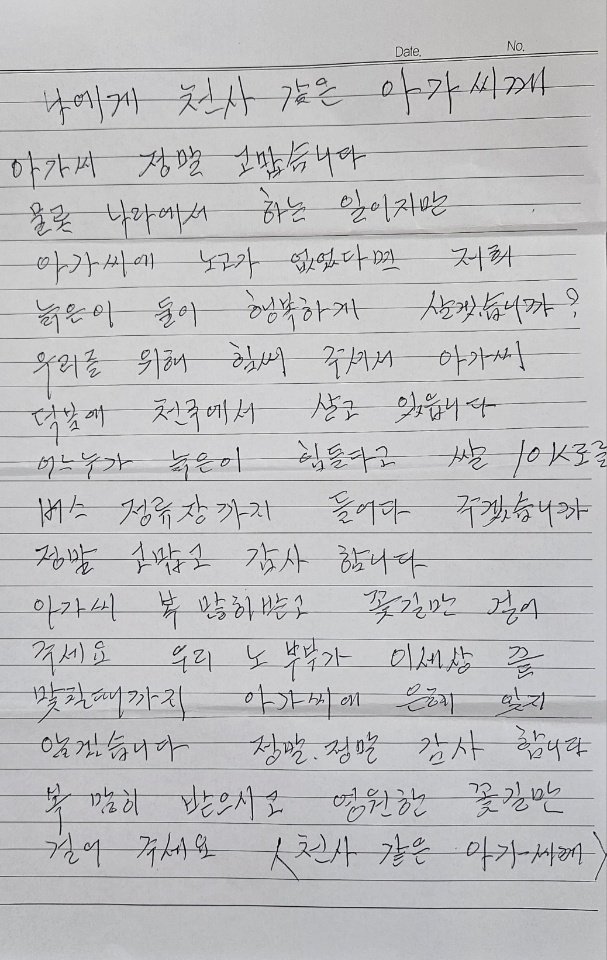 Date. No.
나에게 천사 같은 아가씨께
아가씨 정말 고맙습니다
물론 나라에서 하는 일이지만
아가씨에 노고가 없었다면 저희
늙은이 둘이 행복하게 살겠습니까?
우리를 위해 힘써 주셔서 아가씨
덕분에 천국에서 살고 있읍니다
어느누가 늙은이 힘들다고 쌀 10K로를
버스 정류장까지 들어다 주겠습니까
정말 고맙고 감사 합니다
아가씨 복 많히받고 꽃길만 걸어
주세요 우리 노 부부가 이세상 끝
맞칠때까지 아가씨에 은혜 잊지
않겠습니다 정말.정말 감사 합니다
복 많히 받으시고 영원한 꽃길만
걸어 주세요 (천사 같은 아가씨에)